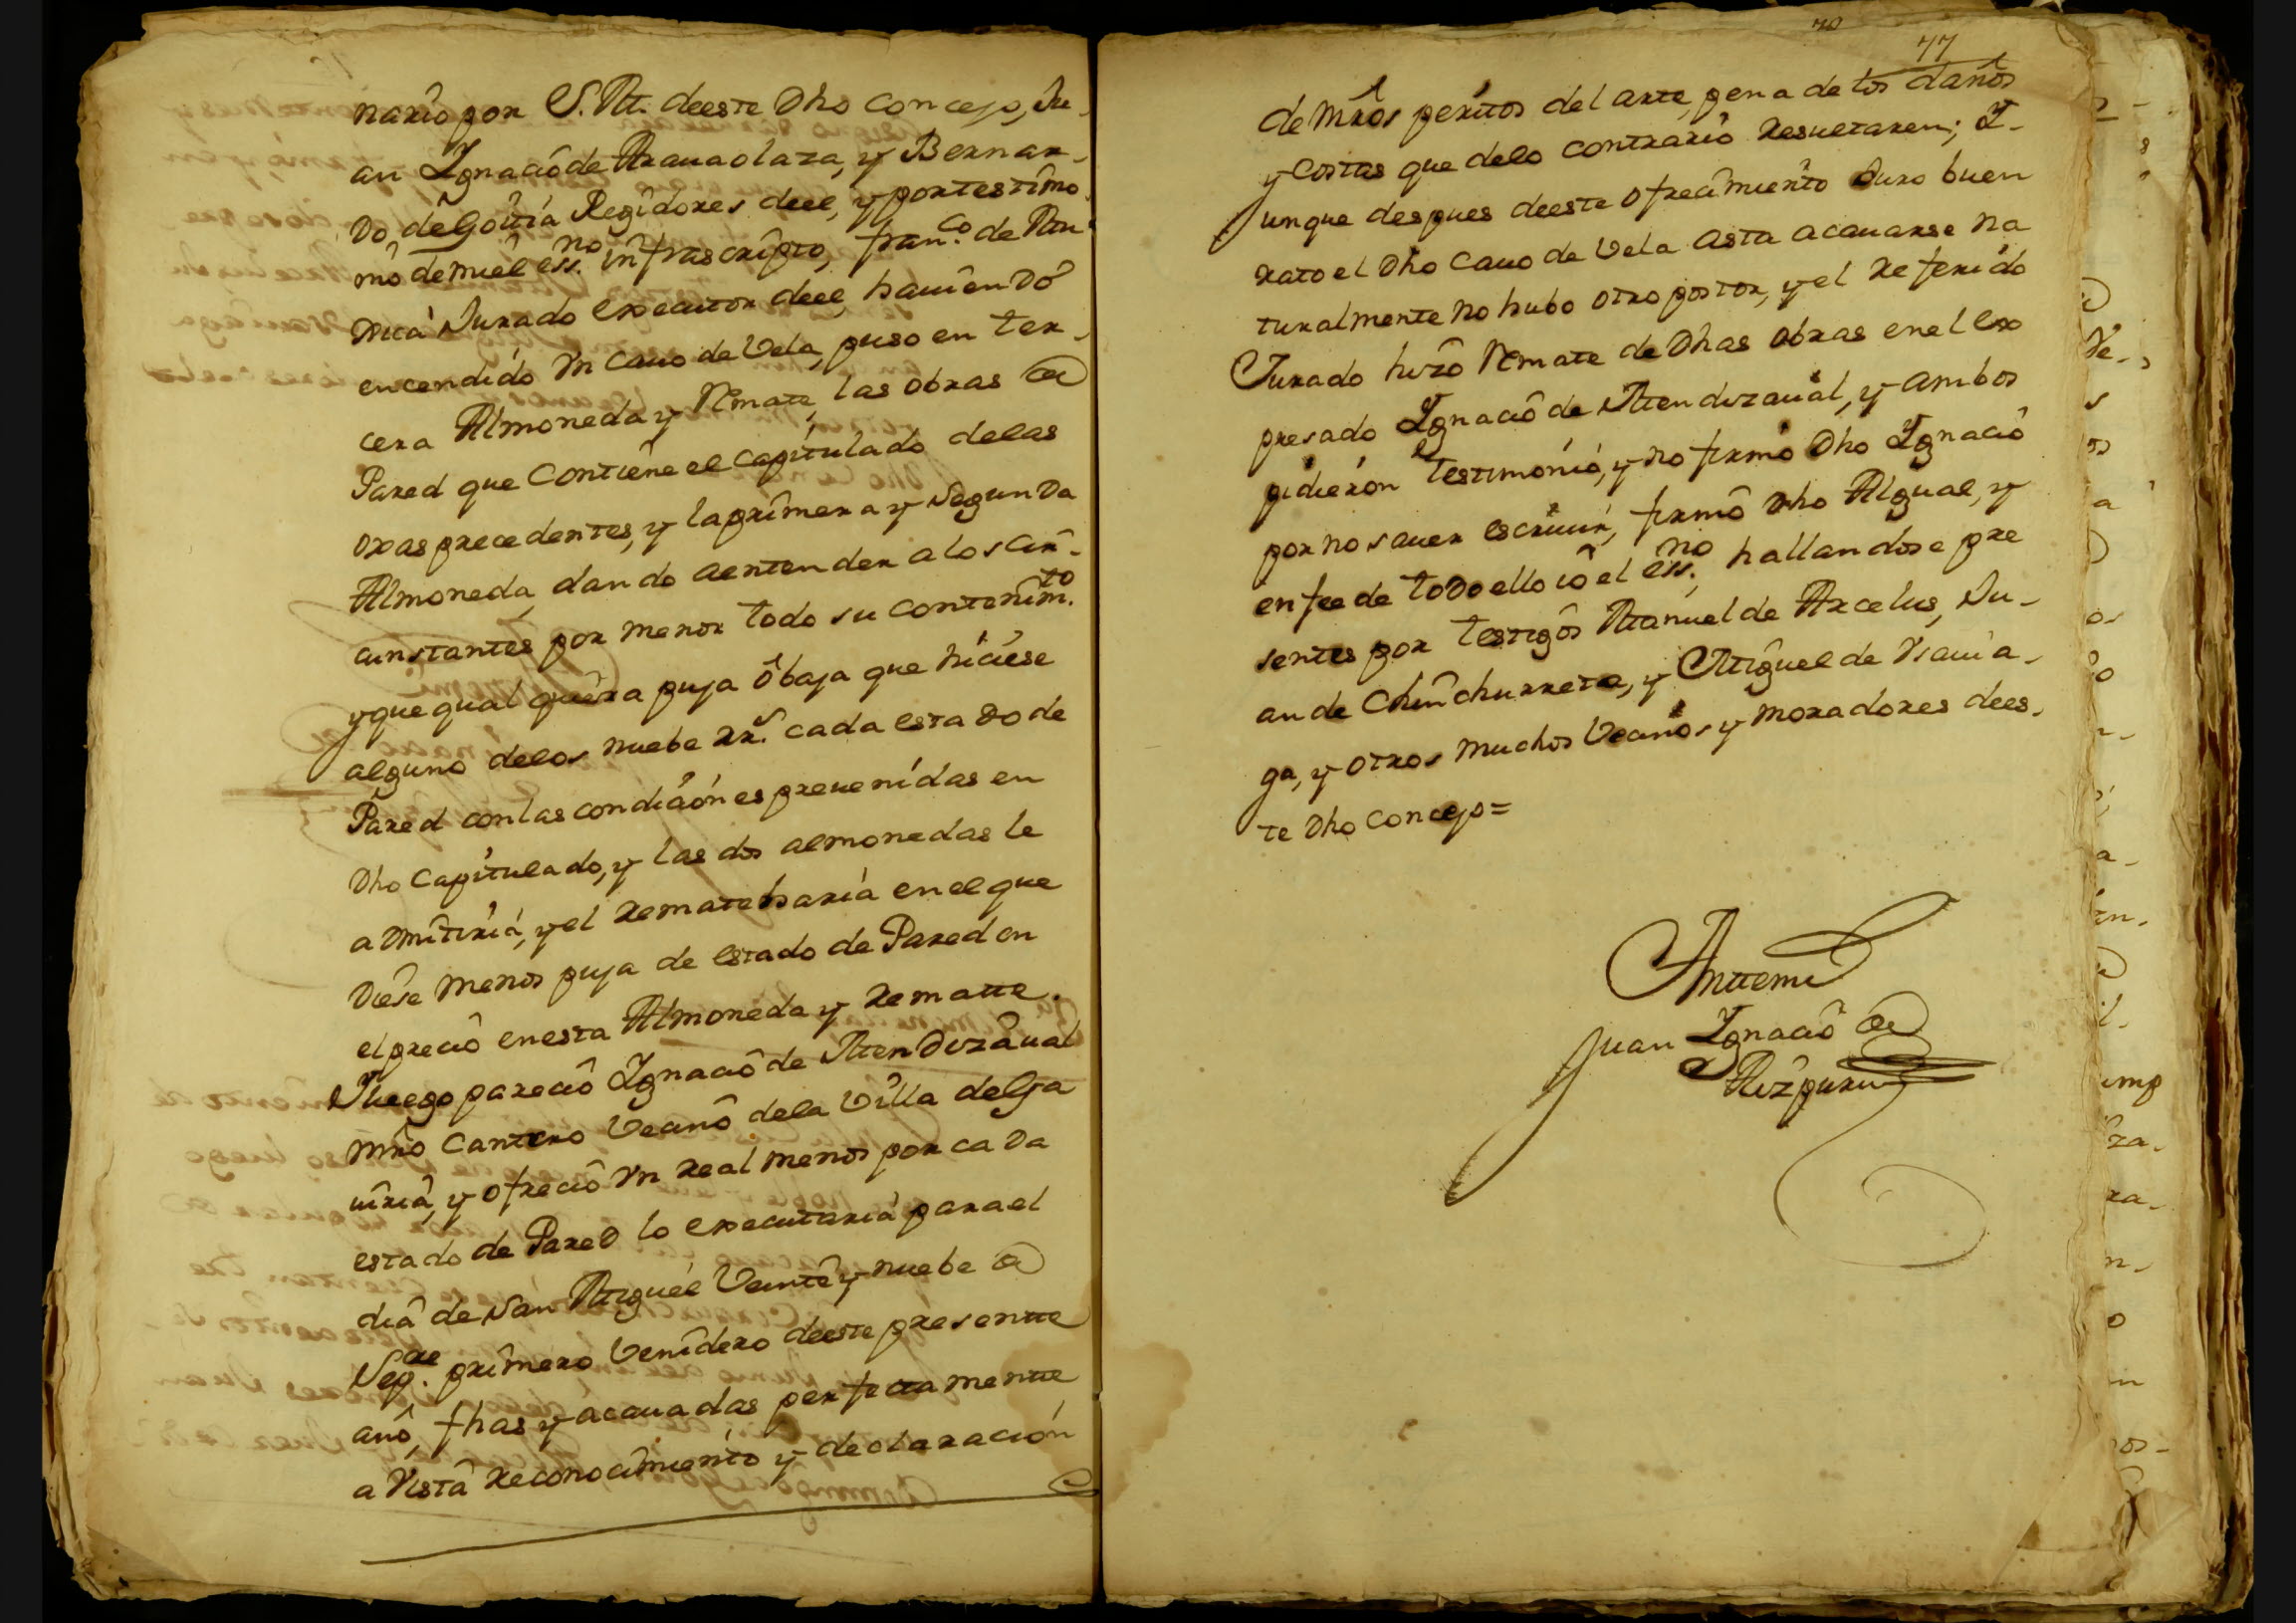 nario por S. M. deeste Dho concejo, Ju-
an Ygnacio de Arauaolaza, y Bernar-
do de Goitia Regidores deel, y por testimo
nio demi el ess.no infrascripto, fran.co de Mu
xica Jurado executor deel, hauiendo
encendido Vn cauo de Vela, puso en ter-
cera Almoneda y Remate, las obras de
Pared que Contiene el Capitulado delas
oxas precedentes, y la primera y Segunda
Almoneda, dando aentender a los cir-
cunstantes por menor todo su contenim.to
y que qual quiera puja o baja que hiciese
alguno delos nuebe rr.s cada estado de
Pared con las condiciones preuenidas en
Dho Capitulado, y las dos almonedas le
admitiria, y el remate haria en el que
diese menos puja de estado de Pared en
el precio enesta Almoneda y rematte.
Y luego parecio Ygnacio de Mendizaual
mro Cantero Vecino dela Villa de Ga
uiria, y ofrecio Vn real menos por cada
estado de Pared lo executaria para el
dia de San Miguel Veinte y nuebe de
Sep.re primero Venidero deeste presentte
año, fhas y acauadas perfectamentte
a Vista reconocimiento y declaracion
77
de mros peritos del arte, pena de los daños
y Costas que delo contrario resultaren; Y-
aunque despues deeste ofrecimiento Duro buen
rato el Dho cauo de Vela asta acauarse na
turalmente no hubo otro postor, y el referido
Jurado hizo Remate de Dhas obras en el ex
presado Ygnacio de Mendizaual, y ambos
pidieron testimonio, y no firmo Dho Ygnacio
por no sauer escriuir, firmo dho Algual, y
en fee de todo ello io el ess.no hallandose pre
sentes por testigos Manuel de Arcelus, Ju-
an de Chinchurreta, y Miguel de Viauia-
ga, y otros muchos Vecinos y moradores dees-
te Dho Concejo=
Anttemi
Juan Ygnacio de
Aizpuru